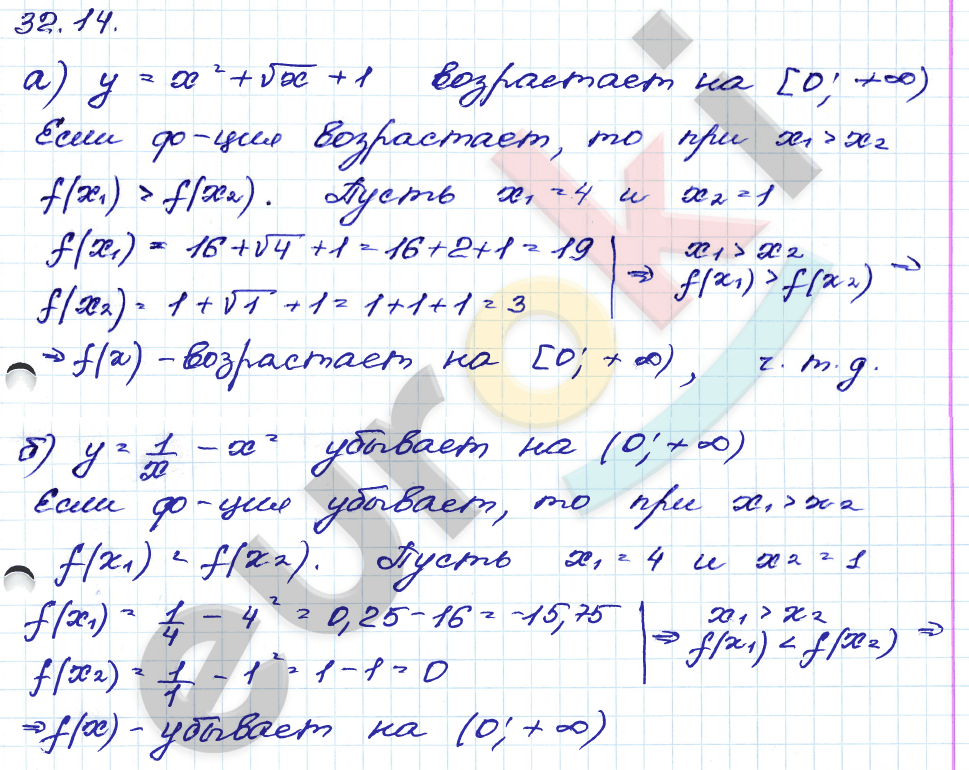 32.14.
а) y = x² + √x + 1 возрастает на [0; +∞)
Если ф-ция возрастает, то при x₁ > x₂
f(x₁) > f(x₂). Пусть x₁ = 4 и x₂ = 1
f(x₁) = 16 + √4 + 1 = 16 + 2 + 1 = 19 | ⇒ x₁ > x₂
f(x₁) > f(x₂) ⇒
f(x₂) = 1 + √1 + 1 = 1 + 1 + 1 = 3
⇒ f(x) – возрастает на [0; +∞), ч.т.д.
б) y = 1/x – x² убывает на (0; +∞)
Если ф-ция убывает, то при x₁ > x₂
f(x₁) < f(x₂). Пусть x₁ = 4 и x₂ = 1
f(x₁) = 1/4 – 4² = 0,25 – 16 = -15,75 | ⇒ x₁ > x₂
f(x₁) < f(x₂) ⇒
f(x₂) = 1/1 – 1² = 1 – 1 = 0
⇒ f(x) – убывает на (0; +∞)
euroki